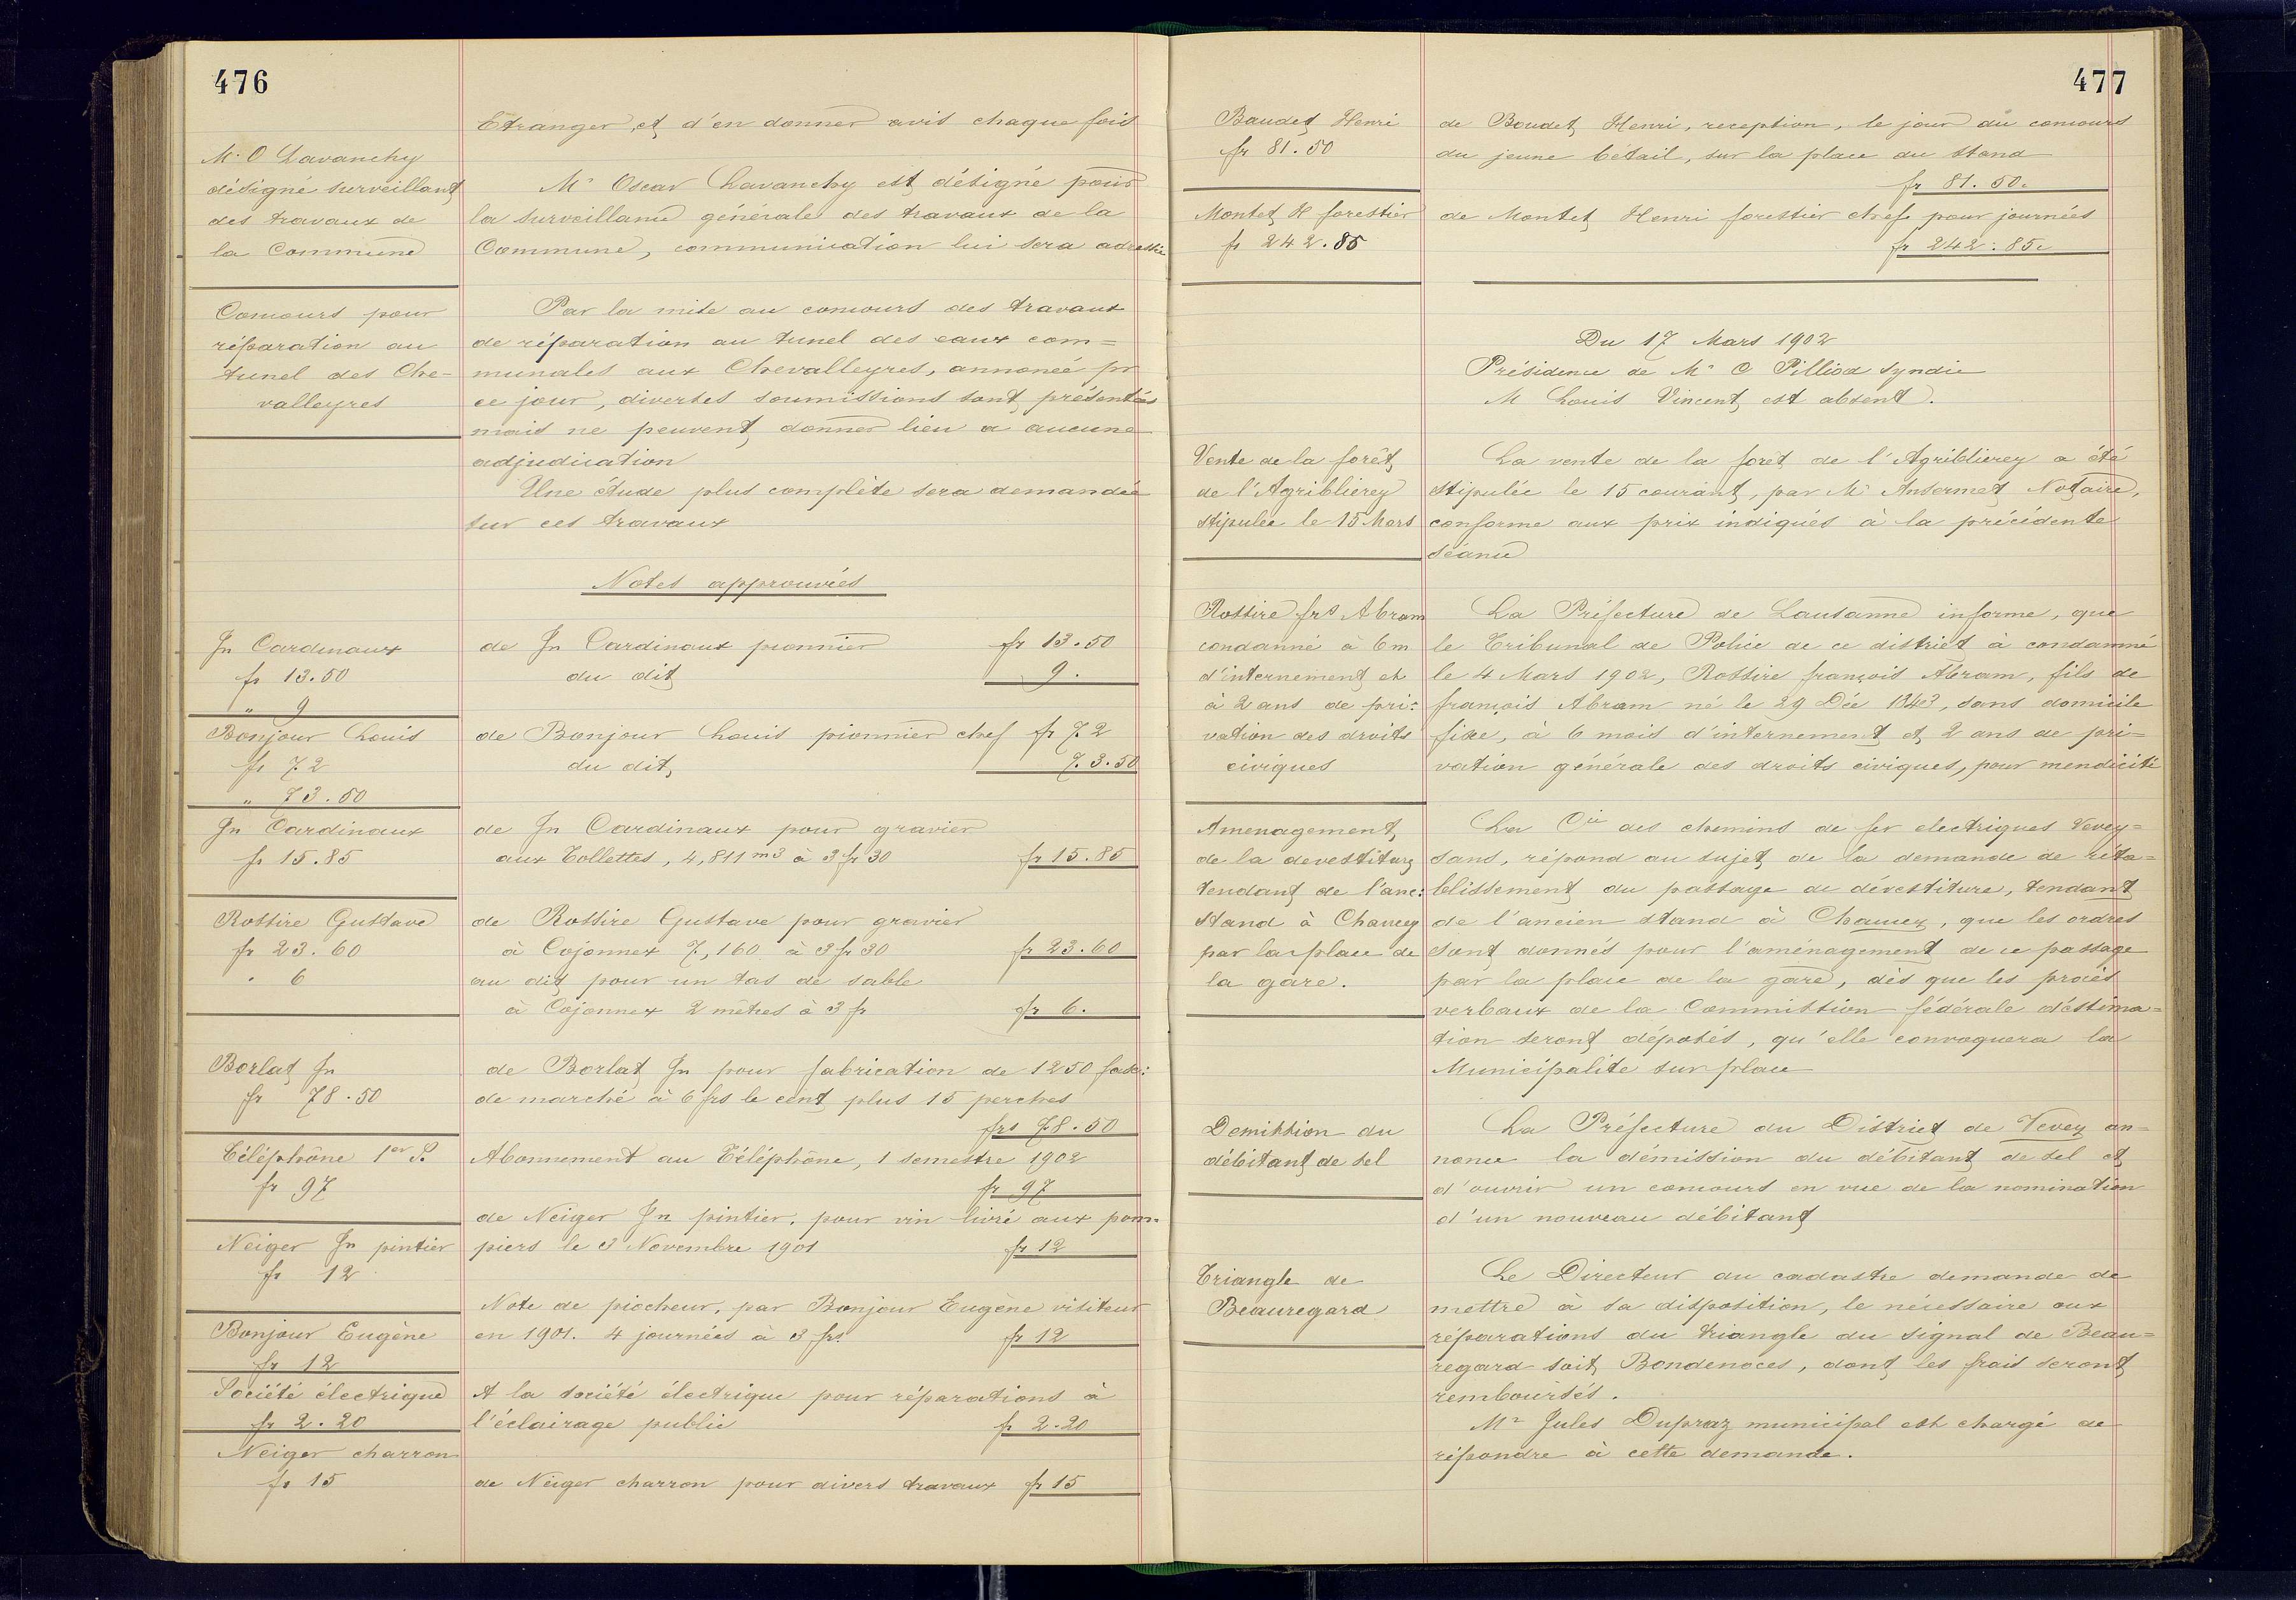 476
Etranger, et d'en donner avis chaque fois
Mr O Lavanchy
désigné surveillant
des travaux de
la Commune
Mr Oscar Lavanchy est désigné pour
la surveillance générale des travaux de la
Commune, communication lui sera adressée
Concours pour
réparation au
tunel des Che-
valleyres
Par la mise au concours des travaux
de réparation au tunel des eaux com=
munales aux Chevalleyres, annoncé pr
ce jour, diverses soumissions sont présentées
mais ne peuvent donner lieu a aucune
adjudication
Une étude plus complète sera demandée
sur ces travaux
Notes approuvées
Jn Cardinaux
fr 13.50
" 9
de Jn Cardinaux pionnier fr 13.50
du dit 9.
Bonjour Louis
fr 72
" 73.50
de Bonjour Louis pionnier chef fr 72
du dit 73.50
Jn Cardinaux
fr 15.85
de Jn Cardinaux pour gravier
aux Tollettes, 4,811 m3 à 3 fr 30 fr 15.85
Rossire Gustave
fr 23.60
" 6
de Rossire Gustave pour gravier
à Cojonnex 7,160 à 3 fr 30 fr 23.60
au dit pour un tas de sable
à Cojonnex 2 mètres à 3 fr fr 6.
Borlat Jn
fr 78.50
de Borlat Jn pour fabrication de 1250 fasc:
de marché à 6 frs le cent plus 15 perches
frs 78.50
Téléphône 1er S.
fr 97
Abonnement au Téléphône, 1 semestre 1902
fr 97
Neiger Jn pintier
fr 12
de Neiger Jn pintier, pour vin livré aux pom-
piers le 3 Novembre 1901 fr 12
Bonjour Eugène
fr 12
Note de piocheur, par Bonjour Eugène visiteur
en 1901. 4 journées à 3 frs fr 12
Société électrique
fr 2.20
A la société électrique pour réparations à
l'éclairage public fr 2.20
Neiger charron
fr 15
de Neiger charron pour divers travaux fr 15
477
Baudet Henri
fr 81.50
de Boudet Henri, reception, le jour du concours
du jeune bétail, sur la place du Stand
fr 81.50.
Montet H forestier
fr 242.85
de Montet Henri forestier chef pour journées
fr 242.85.
Du 17 Mars 1902
Présidence de Mr C Pilliod Syndic
M Louis Vincent est absent.
Vente de la forêt
de l'Agriblierey
stipulée le 15 Mars
La vente de la foret de l'Agriblierey a été
stipulée le 15 courant, par Mr Ansermet Notaire,
conforme aux prix indiqués à la précédente
séance
Rossire frs Abram
condanné à 6 m
d'internement et
à 2 ans de pri:
vation des droits
civiques
La Préfecture de Lausanne informe, que
le Tribunal de Police de ce district à condamné
le 4 Mars 1902, Rossire françois Abram, fils de
françois Abram né le 29 Déc 1843, sans domicile
fixe, à 6 mois d'internement et 2 ans de pri=
vation générale des droits civiques, pour mendicité
Amenagement
de la devestiture
tendant de l'anc:
Stand à Chaucey
par la place de
la gare.
La Cie des chemins de fer electriques Vevey=
sans, répond au sujet de la demande de réta=
blissement du passage de dévestiture, tendant
de l'ancien stand à Chaucey, que les ordres
sont donnés pour l'aménagement de ce passage
par la place de la gare, dès que les procès
verbaux de la Commission fédérale d'éstima=
tion seront déposés, qu'elle convoquera la
Municipalité sur place
Demission du
débitant de sel
La Préfecture du District de Vevey an=
nonce la démission du débitant de sel et
d'ouvrir un concours en vue de la nomination
d'un nouveau débitant
Triangle de
Beauregard
Le Directeur du cadastre demande de
mettre à sa disposition, le nécessaire aux
réparations du triangle du signal de Beau=
regard soit Bondenoces, dont les frais seront
remboursés.
Mr Jules Dupraz municipal est chargé de
répondre à cette demande.